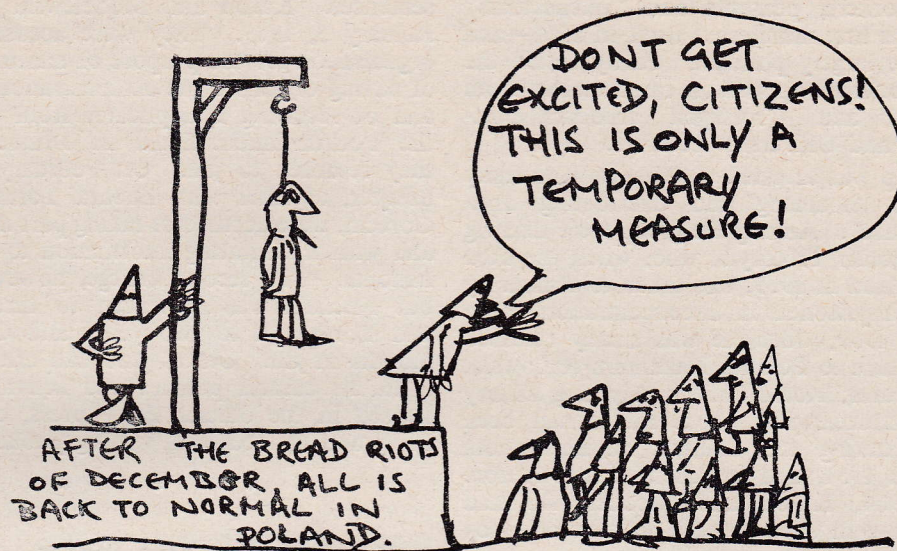 DONT GET
EXCITED, CITIZENS!
THIS IS ONLY A
TEMPORARY
MEASURE!
AFTER THE BREAD RIOTS
OF DECEMBER, ALL IS
BACK TO NORMAL IN
POLAND.